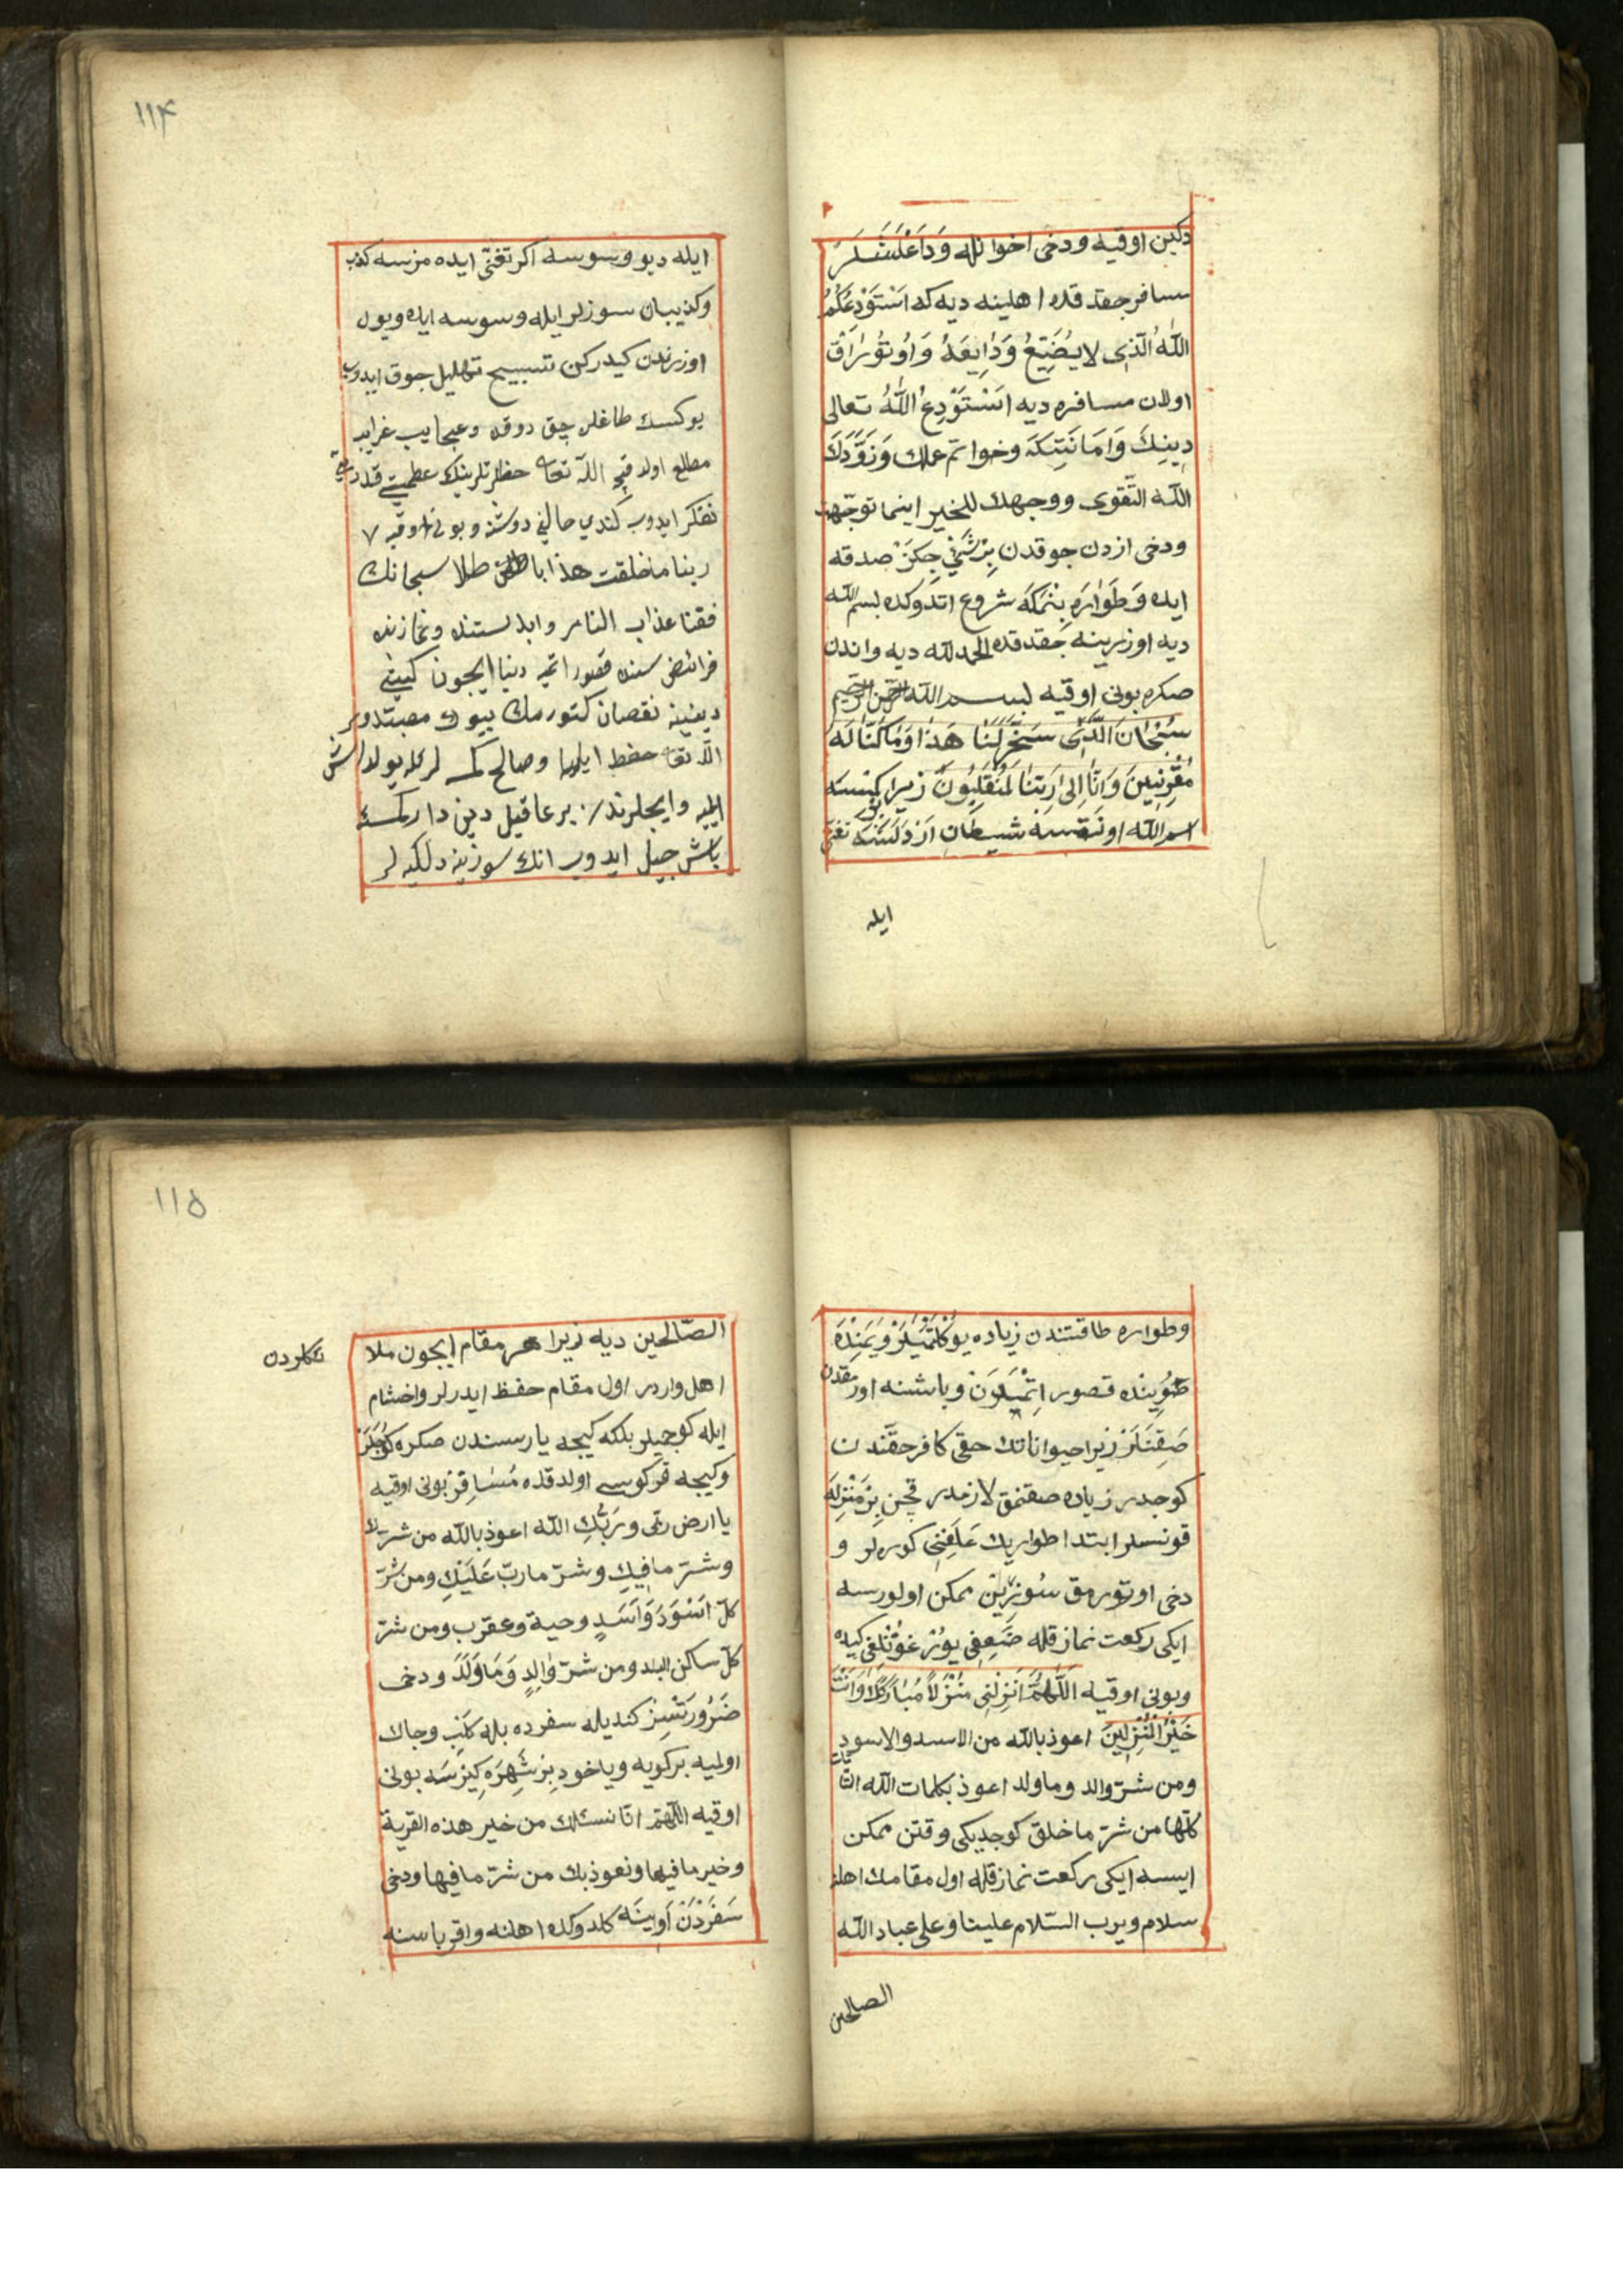 دكين اوقيه ودخى اخوانله وَدَاعْلَشَلَرْ
مسافر چقدقده اهلينه ديه كه اَسْتَوْدِعُكُمُ
اللّٰهُ الَّذِى لا يُضَيِّعُ وَدٰايِعَهُ وَاوُتوُرَاقْ
اولان مسافره ديه اَسْتَوْدِعُ اللّٰهُ تعالى
دِينِكَ وَاَمَانَتِكَهَ وخواتم عملك وَزَوَّدَكَ
اللّه التَّقوى ووجهك للخير اينما توجّهت
ودخى ازدن جوقدن بِرْشَئْ چِكَرْ صدقه
ايده وَطَوٰارَهِ بِنْمَكَهَ شروع اتدوكده بسم اللّه
ديه اوزرينه چقدقده الحمد للّه ديه واندن
صكره بونى اوقيه بسم اللّه الرّحمن الرّحيم
سُبْحٰانَ الَّذِّى سَخَّرَلَنٰا هَذٰا وَمٰا كُنّٰا لَهُ
مُقْرِنِينَ وَاِنّٰا اِلىٰ رَبِّنٰا لَمُنْقَلِبُونَ زيرا كمسه
اسم اللّه اوقمسه شيطان اَرْدَلَشُبْ تغنّى
ايله
١١٤
ايله ديو وسوسه اكر تغنّى ايده مزسه كذب
وكذيبان سوزلر ايله وسوسه ايده ويول
اوزرندن كيدركن تسبيح تهليل جوق ايدوب
يوكسك طاغلره چقدوقده وعجايب غرايب
مطلع اولدقچه اللّه تعا حظرتلرينك عظمتى قدرتنى
تفكر ايدوب كندي حالنى دوشنه وبونى اوقيه ٧
ربنا ما خلقت هذا باطلا سبحانك
فقنا عذاب النار وابدستنده ونمازنده
فرائض سننده قصور اتميه دنيا ايچون كيتى
دينينه نقصان كتورمك بيوك مصيبتدور
اللّه تعا حفظ ايليا وصالح كمسه لرله يولداش
ايليه وايچلرندن بر عاقيل دين دار كمسه
باش چيل ايدوب انك سوزينه دكليه لر
وطواره طاقتندن زياده يوكلَتْمَيَلَرْ وَيَمِنْدَهَ
صُوِيندَه قصور اِتْمَيَلَرْ وباشنه اورمقدن
صَقِنَلَرْ زيرا حيواناتك حقى كافر حقّندن
كوجدر زياده صقنمق لازمدر قچن بِرْ مَنْزِلَهَ
قونسلر ابتدا طواريك عَلَفِنِى كوره لر و
دخى اوتورمق سُوزِيِن ممكن اولورسه
ايكى ركعت نماز قله ضَعِفِى يوُرْغوُنْلِغى كيده
وبونى اوقيه اَللّٰهُمَّ اَنْزِلْنِى مُنْزَلاً مُبٰارَكاً وَاَنْتَ
خَيْرُ الْمُنْزِلِينَ اعوذ باللّه من الاسد والاسود
ومن شرّ والد وما ولد اعوذ بكلمات اللّه التّامات
كلّها من شرّ ما خلق كوجديكى وقتن ممكن
ايسه ايكى ركعت نماز قله اول مقامك اهلنه
سلام ويرب السّلام علينا وعلى عباد اللّه
الصالحين
١١٥
الصّالحين ديه زيرا هر مقام ايچون ملا
ئكلردن
اهل واردر اول مقام حفظ ايدرلر واخشام
ايله كوجميلر بلكه كيجه يارسندن صكره كوجلر
وكيجه قركوسى اولدقده مُسٰافِرْ بونى اوقيه
يا ارض ربّى وربُّكِ اللّه اعوذ باللّه من شرّك
وشرّ مافِيكِ وشرّ ما ربّ عَلَيْكِ ومن شرّ
كلّ اَسْوَدَ وَاَسَدٍ وحية وعقرب ومن شرّ
كلّ ساكن البلد ومن شرّ وٰالِدٍ وَمَا وَلَدَ ودخى
ضَرُورَتْسِزْ كنديله سفرده بله كَلْبْ وجاك
اولميه بركويه وياخود بِرْ شَهِرَه كِيرْسَه بونى
اوقيه اللّهمّ انّا نسئلك من خير هذه القرية
وخير ما فيها ونعوذ بك من شرّ ما فيها ودخى
سَفَرْدَنْ اَوِينَه كلدوكده اهلنه واقرباسنه